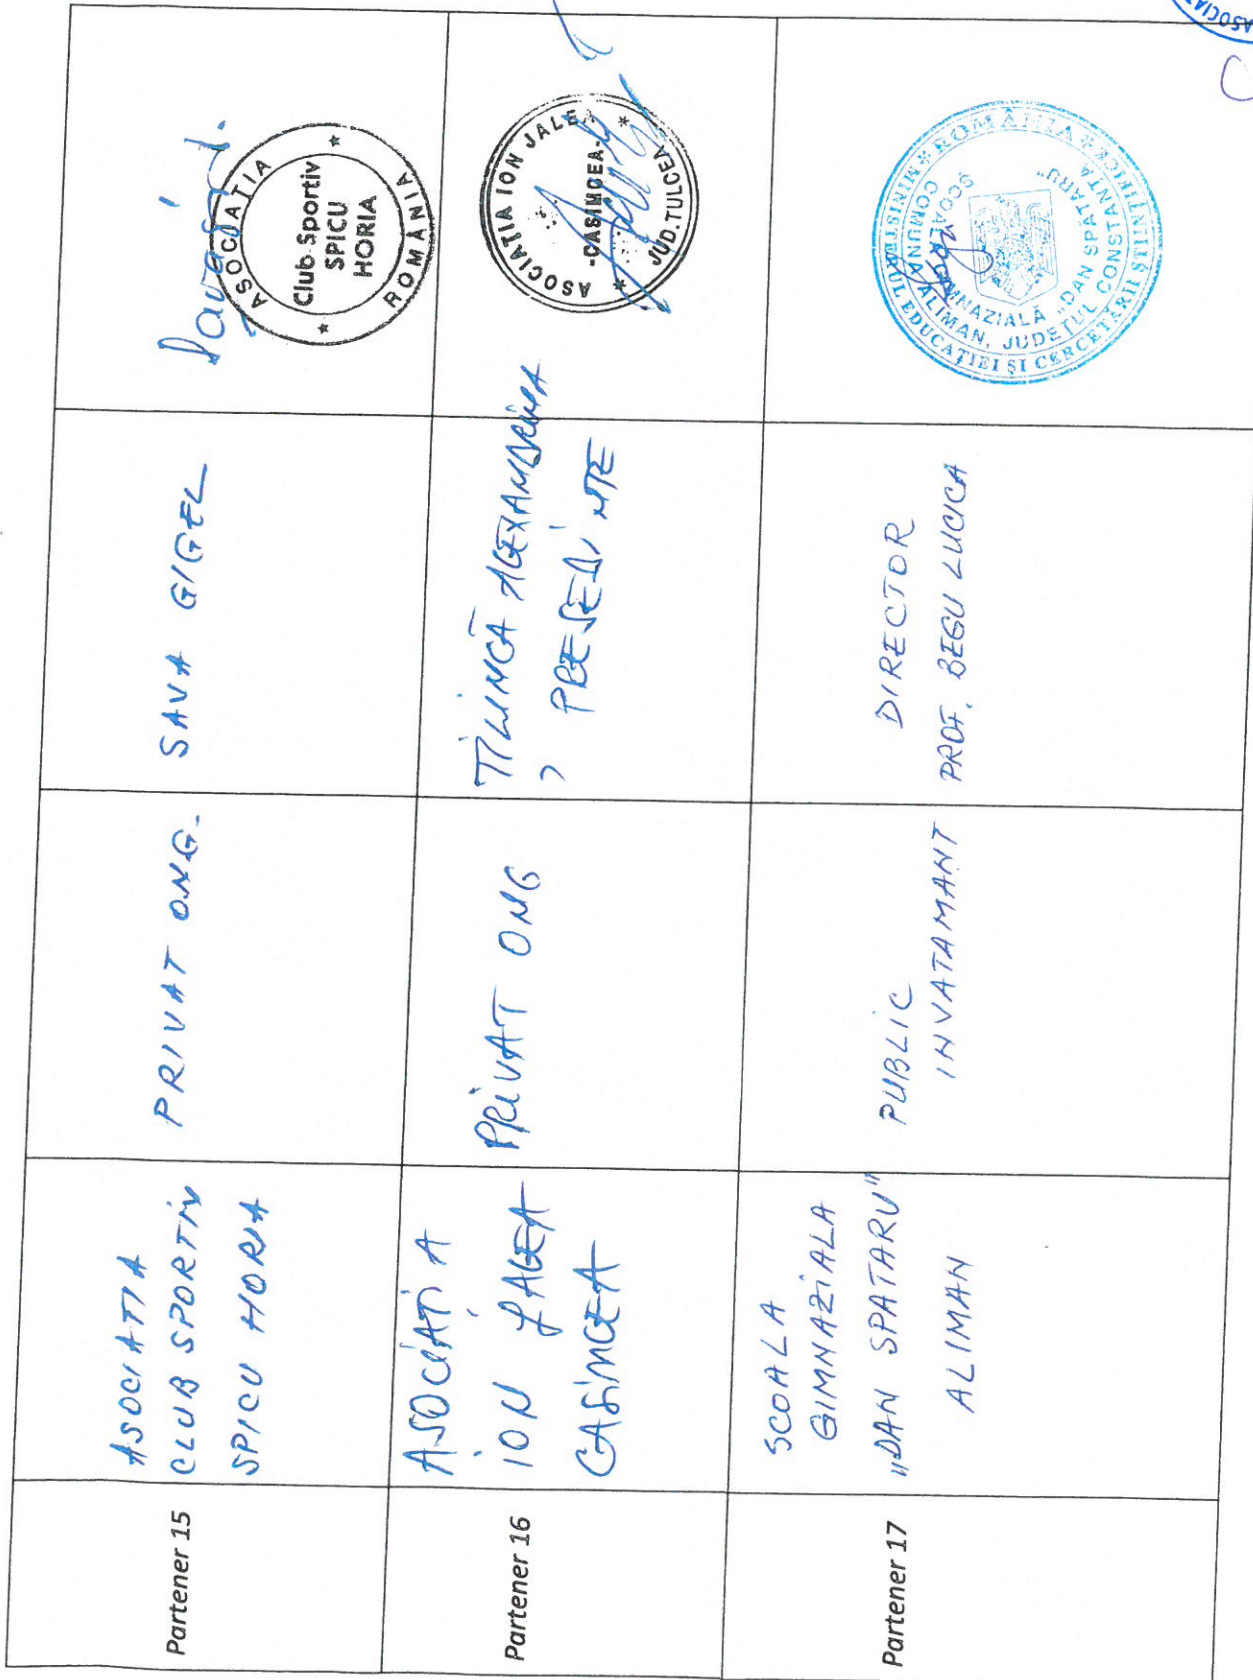 Partener 15
ASOCIATIA
CLUB SPORTIV
SPICU HORIA
PRIVAT ONG.
SAVA GIGEL
ASOCIAȚIA
Club Sportiv
SPICU
HORIA
ROMÂNIA
Partener 16
ASOCIATIA
ION JALEA
CASIMCEA
PRIVAT ONG
TILINCĂ ALEXANDRINA
, PRESEDINTE
ASOCIATIA ION JALEA
-CASIMCEA-
JUD.TULCEA
Partener 17
SCOALA
GIMNAZIALA
„DAN SPATARU"
ALIMAN
PUBLIC
INVATAMANT
DIRECTOR
PROF. BEGU LUCICA
ROMÂNIA
MINISTERUL EDUCAȚIEI ȘI CERCETĂRII ȘTIINȚIFICE
COMUNA ALIMAN, JUDEȚUL CONSTANȚA
ȘCOALA GIMNAZIALĂ „DAN SPATARU"